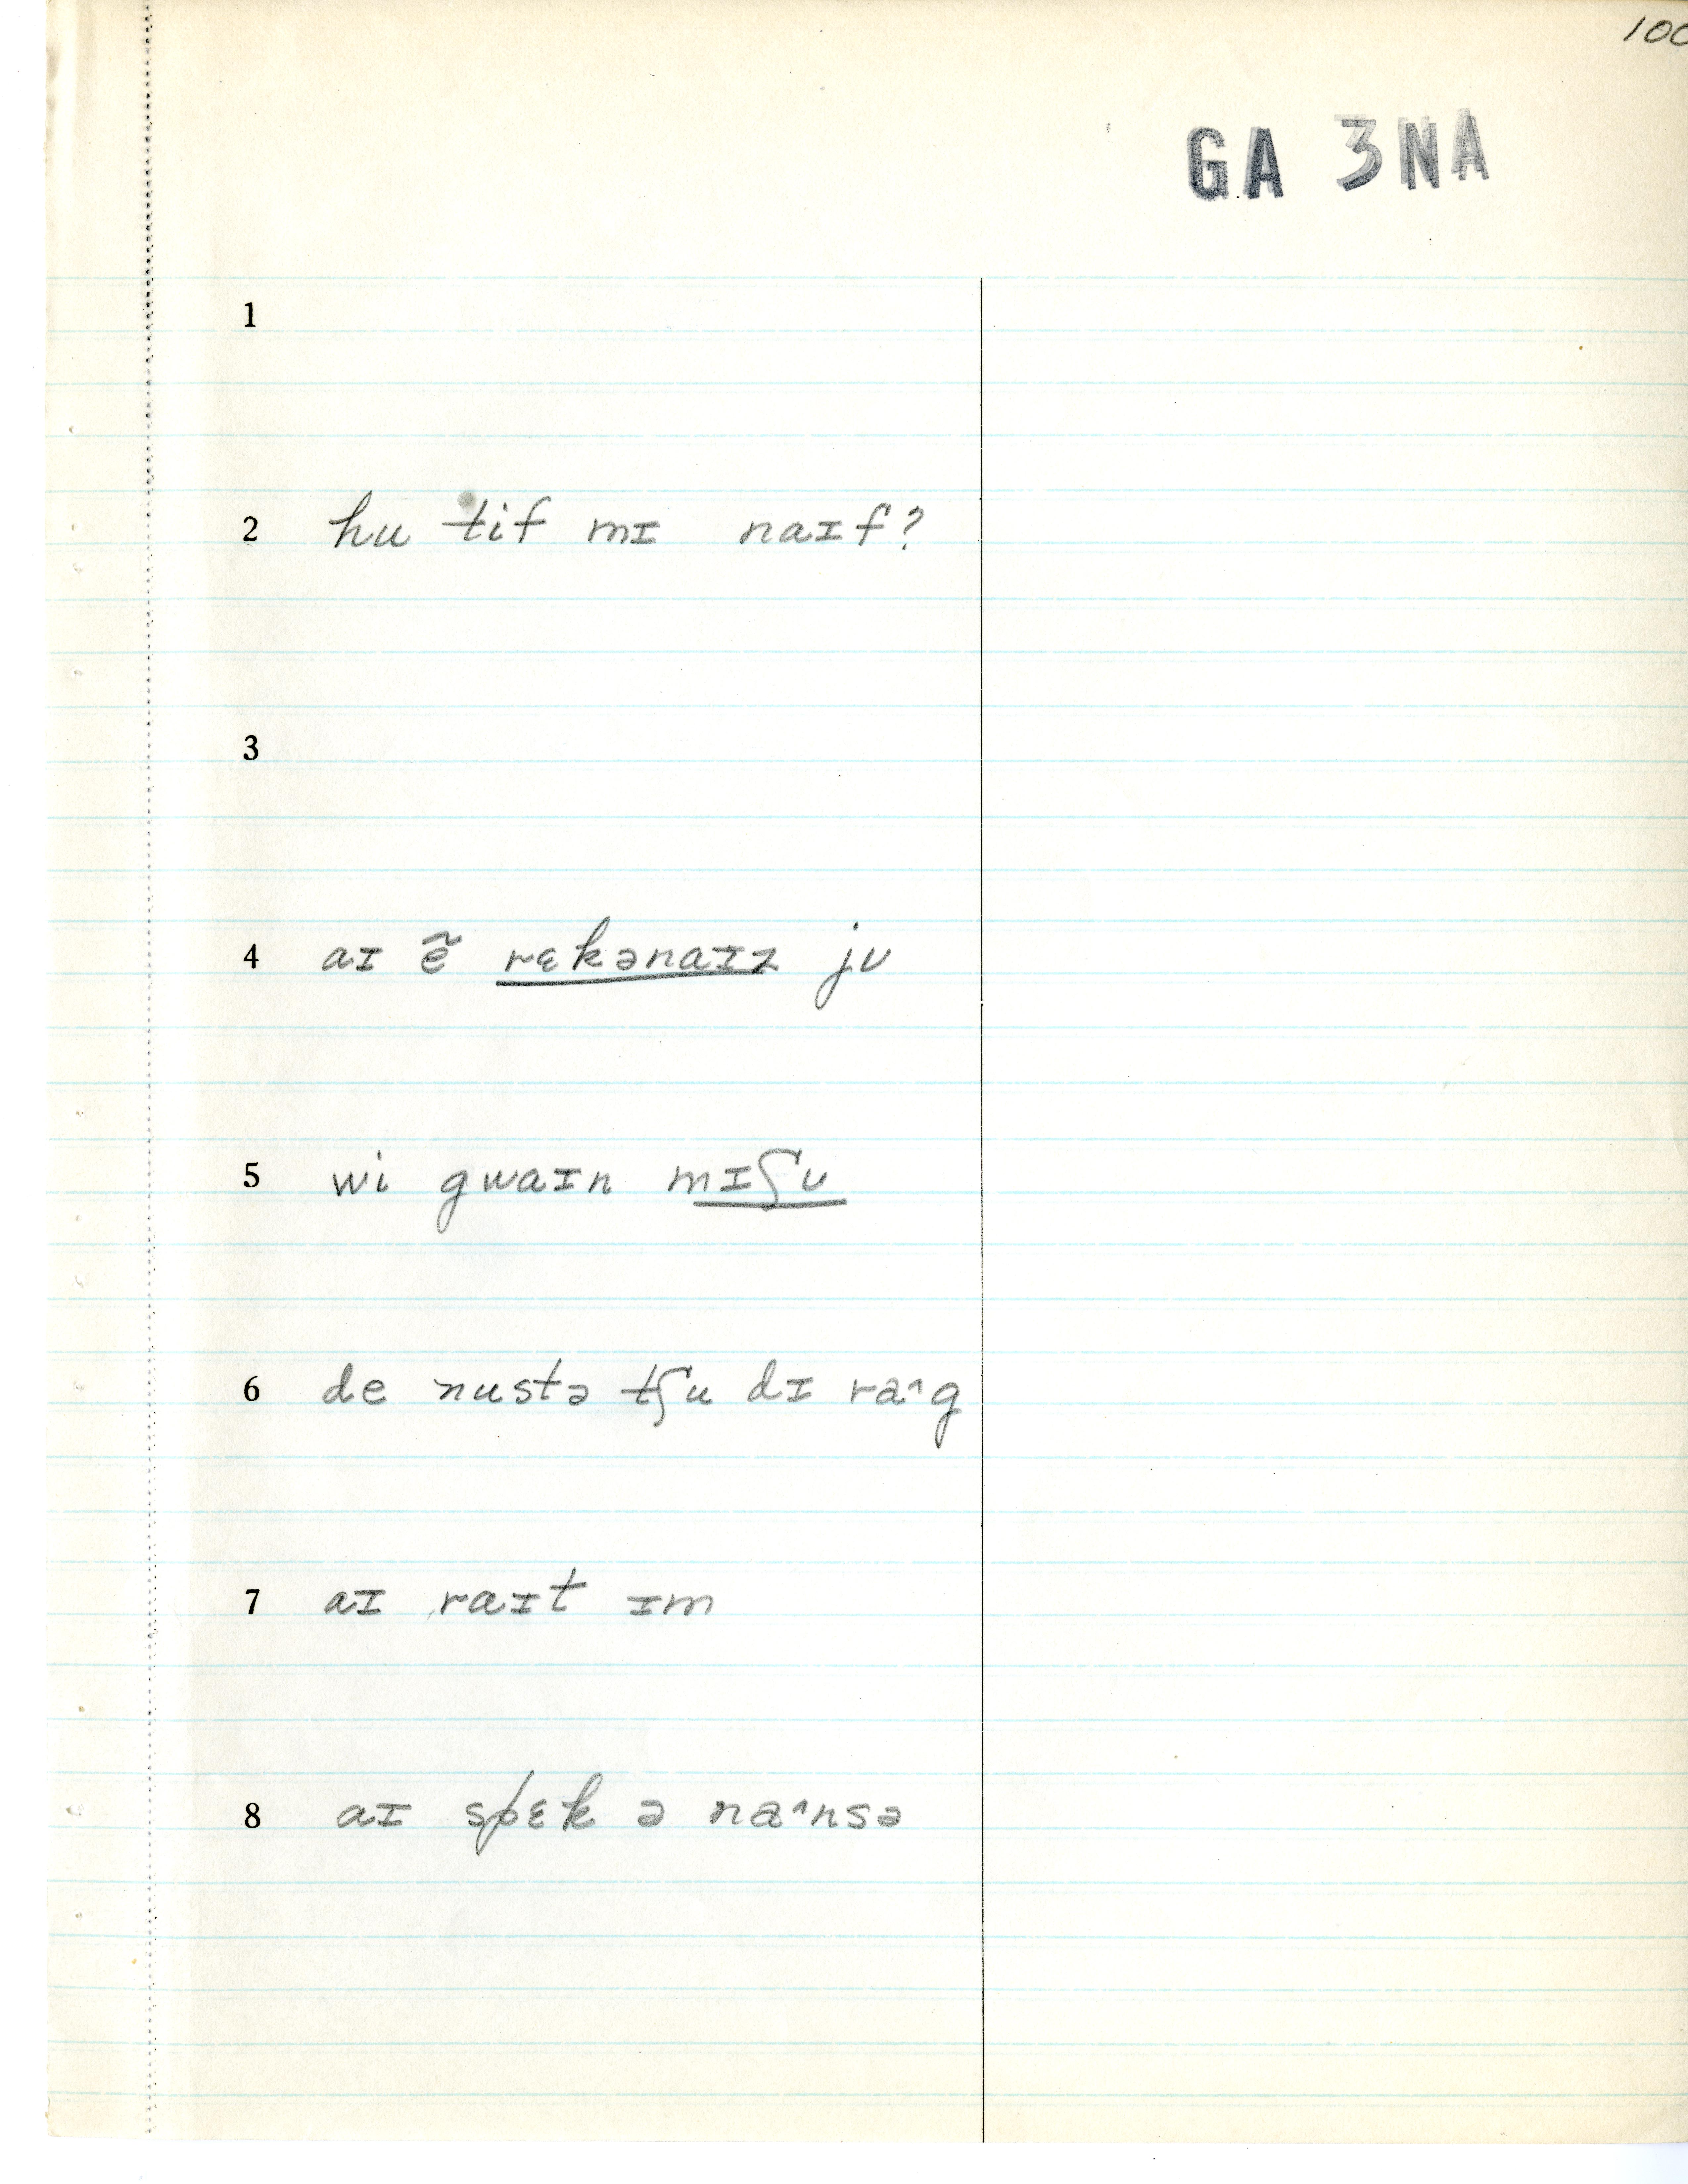 100
GA 3NA
1
2 hu tif mɪ naɪf?
3
4 aɪ ẽ rɛkənaɪz jʊ
5 wi gwaɪn mɪʃu
6 de nustə tʃu dɪ ra˄g
7 aɪ raɪt ɪm
8 aɪ spɛk ə na˄nsə